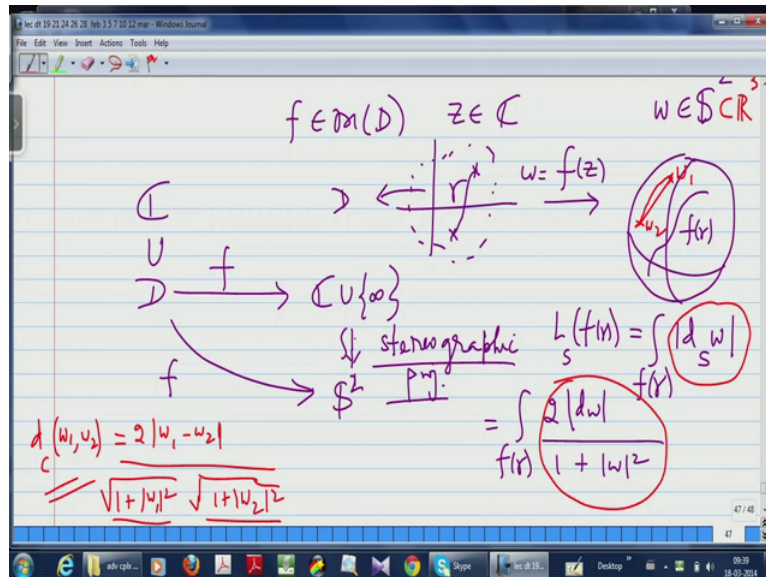 lec dt 19 21 24 26 28 feb 3 5 7 10 12 mar - Windows Journal
File Edit View Insert Actions Tools Help
f ∈ 𝔐(D) z ∈ ℂ w ∈ 𝕊² ⊂ ℝ³
ℂ D γ w = f(z) w₁
∪ w₂ f(γ)
D f ℂ ∪ {∞}
stereographic
proj.
f 𝕊²
L_S (f(γ)) = ∫_{f(γ)} |d_S w|
= ∫_{f(γ)} 2|dw| / (1 + |w|²)
d_C (w₁, w₂) = 2|w₁ - w₂| / (√(1+|w₁|²) √(1+|w₂|²))
47 / 48
47
adv cplx ...
Skype
lec dt 19...
Desktop
09:39
18-03-2014